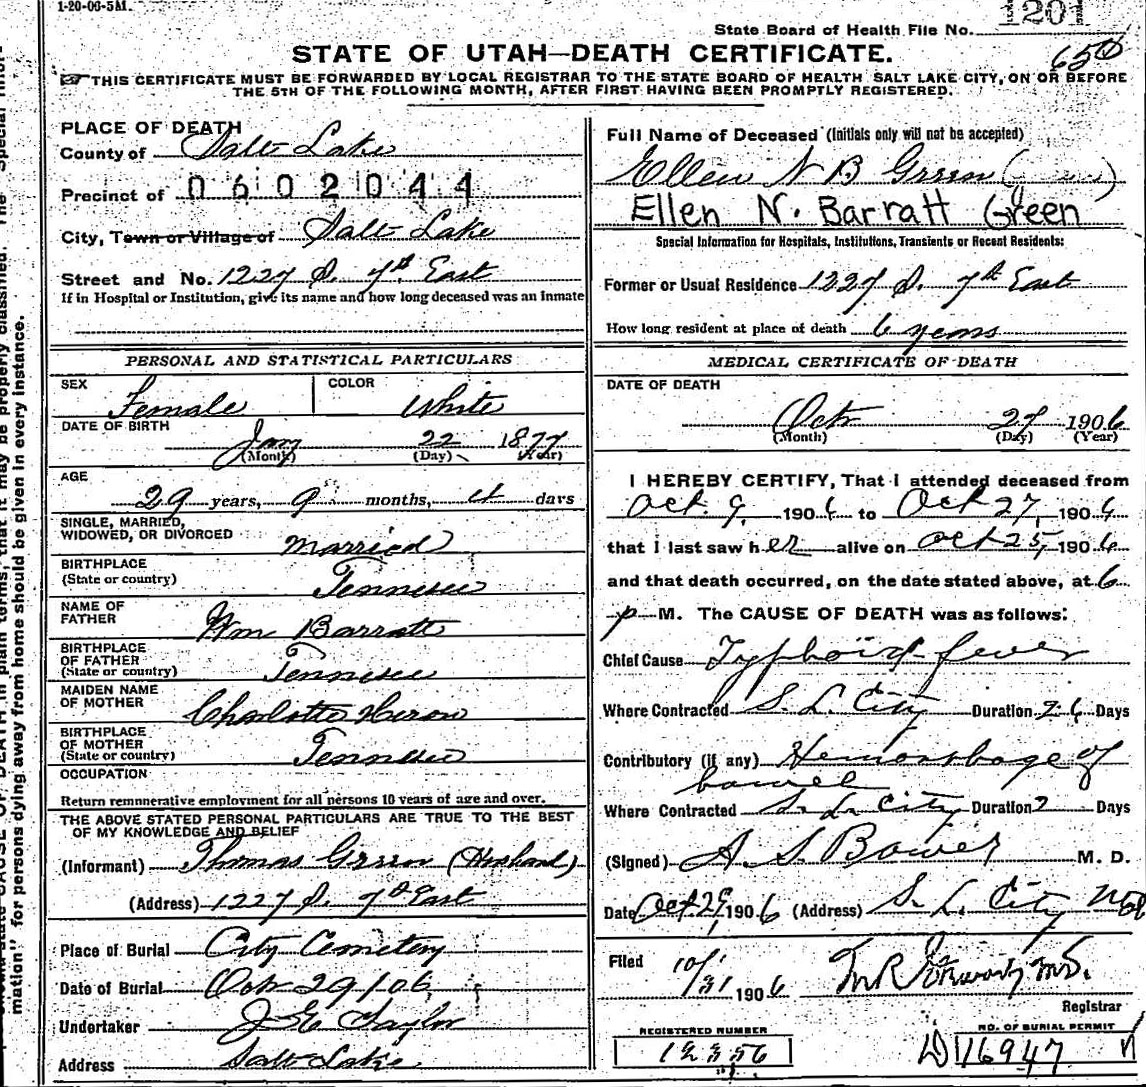 1-20-06-5M.
1201
State Board of Health File No.
STATE OF UTAH—DEATH CERTIFICATE.
650
THIS CERTIFICATE MUST BE FORWARDED BY LOCAL REGISTRAR TO THE STATE BOARD OF HEALTH SALT LAKE CITY, ON OR BEFORE
THE 5TH OF THE FOLLOWING MONTH, AFTER FIRST HAVING BEEN PROMPTLY REGISTERED.
PLACE OF DEATH
County of Salt Lake
Precinct of 0602044
City, Town or Village of Salt Lake
Street and No. 1227 S. 7th East
If in Hospital or Institution, give its name and how long deceased was an Inmate
PERSONAL AND STATISTICAL PARTICULARS
SEX Female COLOR White
DATE OF BIRTH
Jany 22 1877
(Month) (Day) (Year)
AGE
29 years, 9 months, 4 days
SINGLE, MARRIED,
WIDOWED, OR DIVORCED Married
BIRTHPLACE
(State or country) Tennessee
NAME OF
FATHER Wm Barratt
BIRTHPLACE
OF FATHER
(State or country) Tennessee
MAIDEN NAME
OF MOTHER Charlotte Heron
BIRTHPLACE
OF MOTHER
(State or country) Tennessee
OCCUPATION
Return remunerative employment for all persons 10 years of age and over.
THE ABOVE STATED PERSONAL PARTICULARS ARE TRUE TO THE BEST
OF MY KNOWLEDGE AND BELIEF
(Informant) Thomas Green (Husband)
(Address) 1227 S. 7th East
Place of Burial City Cemetery
Date of Burial Oct 29/06
Undertaker J E Taylor
Address Salt Lake
Full Name of Deceased (Initials only will not be accepted)
Ellen N B Green
Ellen N. Barratt Green
Special Information for Hospitals, Institutions, Transients or Recent Residents:
Former or Usual Residence 1227 S. 7th East
How long resident at place of death 6 years
MEDICAL CERTIFICATE OF DEATH
DATE OF DEATH
Oct 27 1906
(Month) (Day) (Year)
I HEREBY CERTIFY, That I attended deceased from
Oct. 9, 1906 to Oct 27, 1906
that I last saw her alive on Oct 25, 1906
and that death occurred, on the date stated above, at 6
p M. The CAUSE OF DEATH was as follows:
Chief Cause Typhoid fever
Where Contracted S. L. City Duration 26 Days
Contributory (if any) Hemorrhage of
bowel
Where Contracted S. L. City Duration 2 Days
(Signed) A S Bower M. D.
Date Oct 29, 1906 (Address) S. L. City
Filed 10/31 1906
Registrar
REGISTERED NUMBER
12356
NO. OF BURIAL PERMIT
D 16947
mation" for persons dying away from home should be given in every instance.